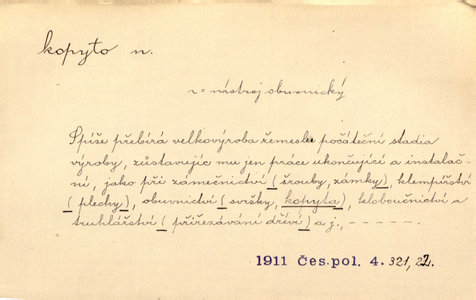 kopyto n.
v=nástroj obuvnický
Spíše přebírá velkovýroba řemeslu počáteční stadia
výroby, zůstavujíc mu jen práce ukončující a instalač-
ní, jako při zámečnictví (šrouby, zámky), klempířství
(plechy), obuvnictví (svršky, kopyta), kloboučnictví a
truhlářství (přiřezávání dříví) a j., - - - - -.
1911 Čes. pol. 4. 321, 22.